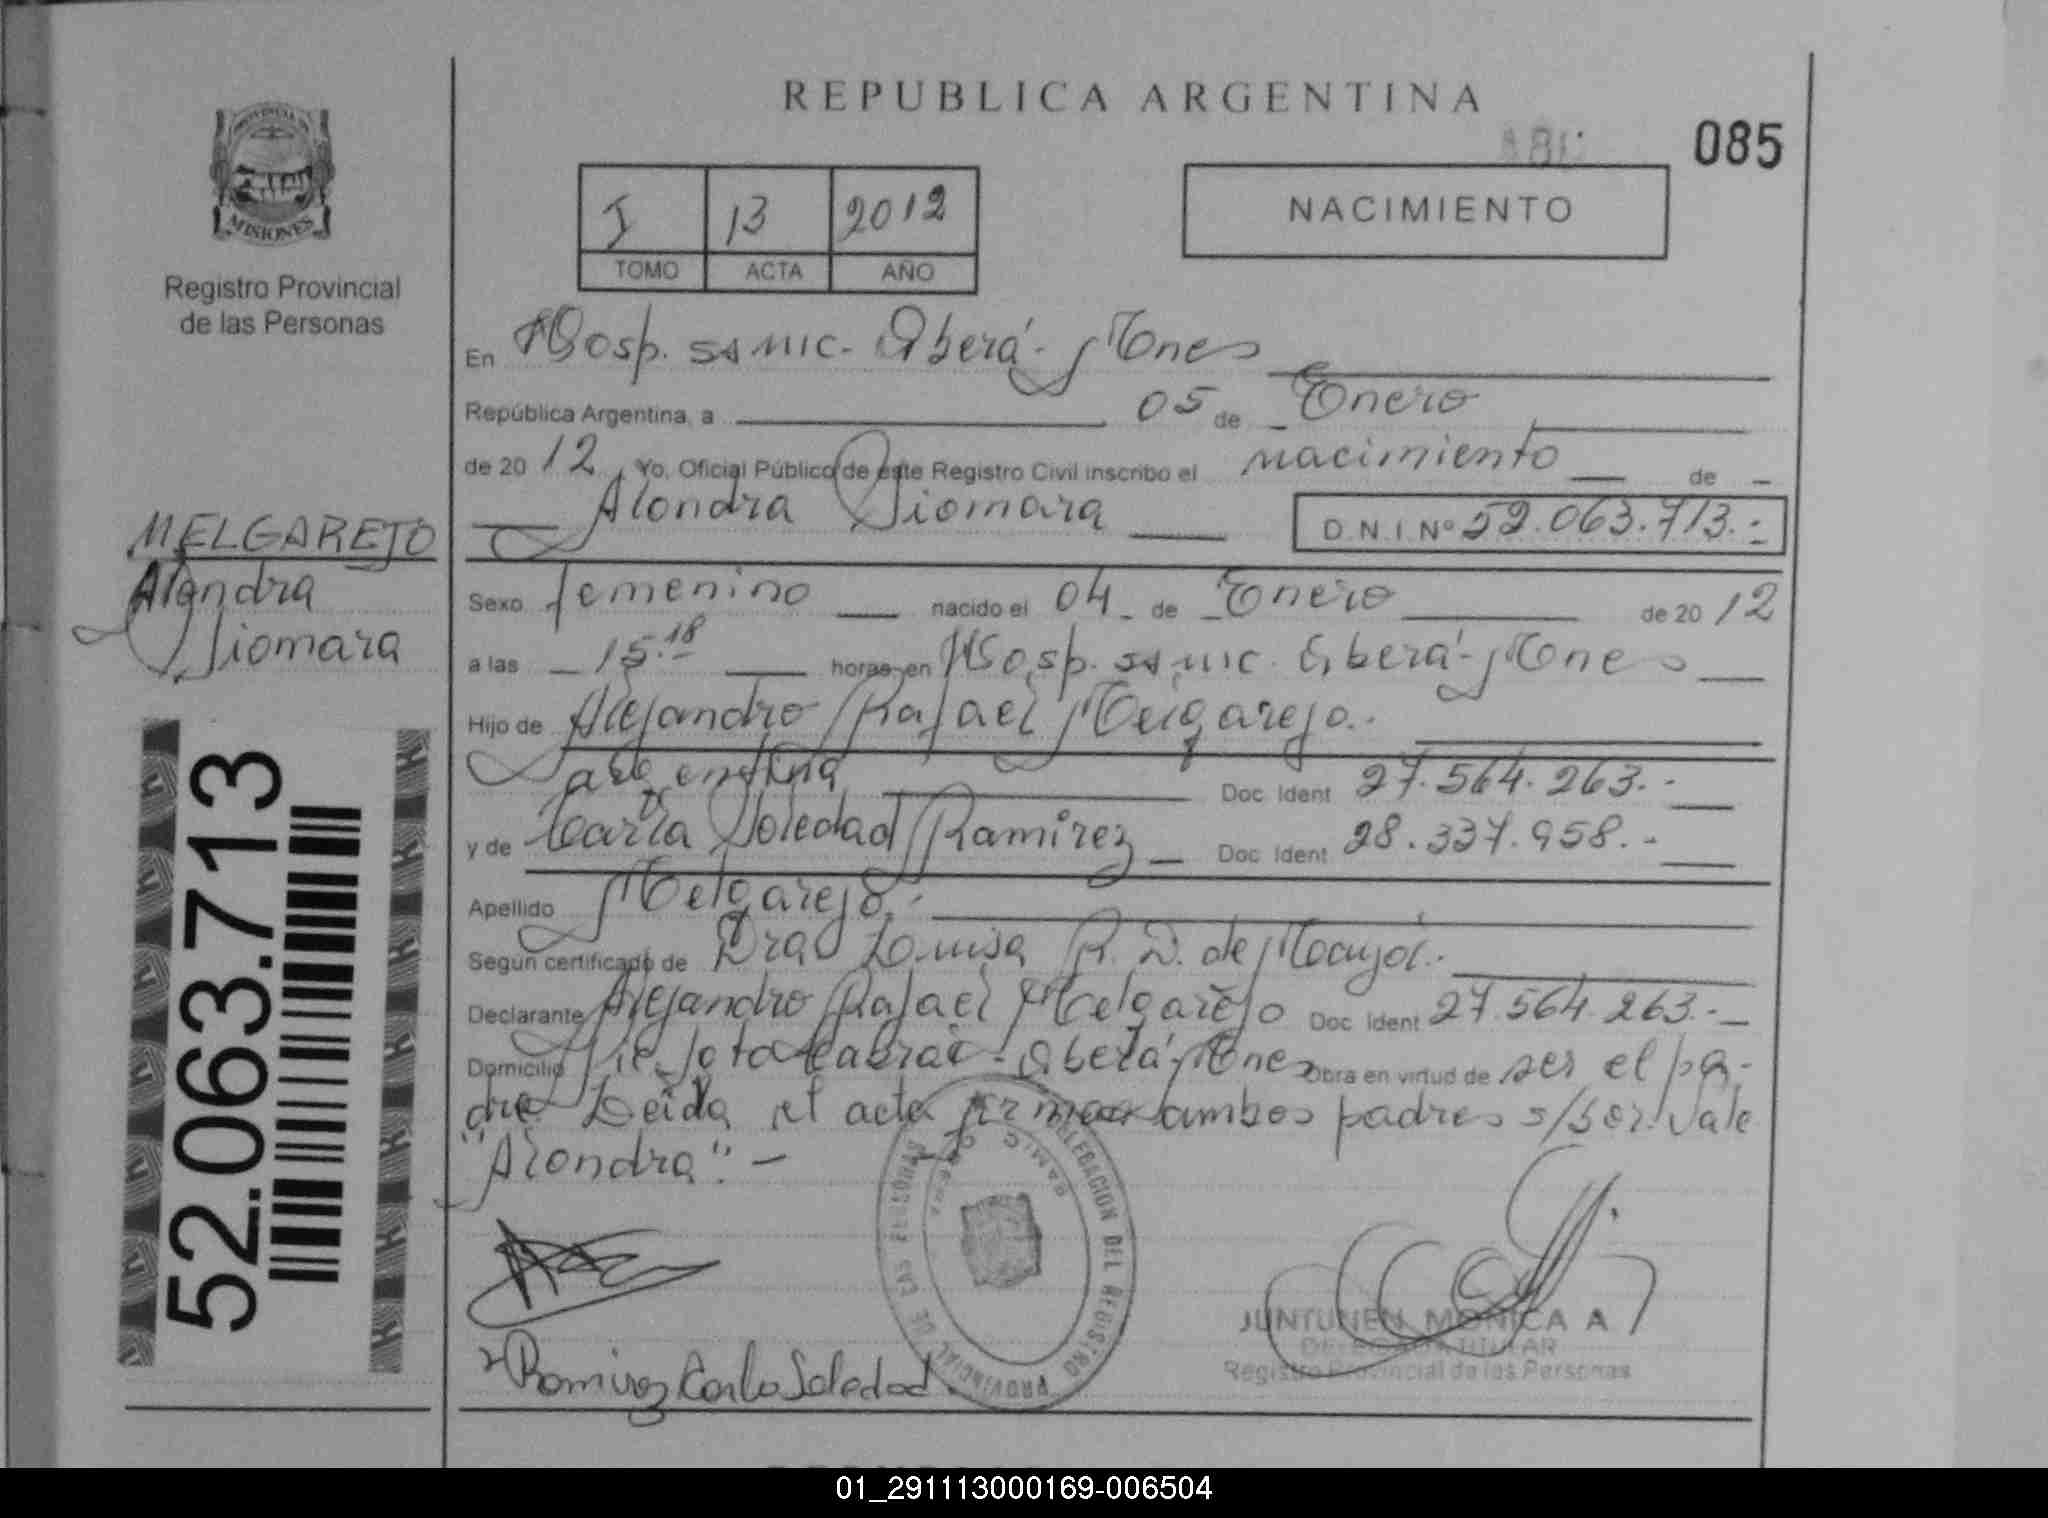 REPUBLICA ARGENTINA
085
MISIONES
Registro Provincial
de las Personas
I 13 2012
TOMO ACTA AÑO
NACIMIENTO
En Hosp. SAMIC - Oberá - Mnes
República Argentina, a 05 de Enero
de 2012, Yo, Oficial Público de este Registro Civil inscribo el nacimiento de
Alondra Siomara D.N.I. Nº 52.063.713.-
MELGAREJO
Alondra
Siomara
Sexo femenino nacido el 04 de Enero de 2012
a las 15.18 horas en Hosp. SAMIC. Oberá - Mnes
Hijo de Alejandro Rafael Melgarejo.-
argentina Doc. Ident 27.564.263.-
y de Carla Soledad Ramirez Doc. Ident 28.337.958.-
Apellido Melgarejo.-
Según certificado de Dra Luisa R. D. de
Declarante Alejandro Rafael Melgarejo Doc. Ident 27.564.263.-
Domicilio Cabral - Oberá Mnes Obra en virtud de ser el pa-
dre Leida el acta firman ambos padres s/bor. Vale
"Alondra".-
52.063.713
DELEGACION DEL REGISTRO PROVINCIAL DE LAS PERSONAS
SAMIC
Ramirez Carla Soledad
JUNTUNEN, MONICA A
DELEGADA TITULAR
Registro Provincial de las Personas
01_291113000169-006504